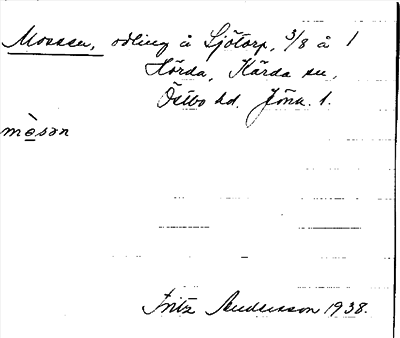 Mossen, odling å Sjötorp, 3/8 å 1
Hörda, Kärda sn,
Östbo hd. Jönk. l.
mèsən
Fritz Andersson 1938.